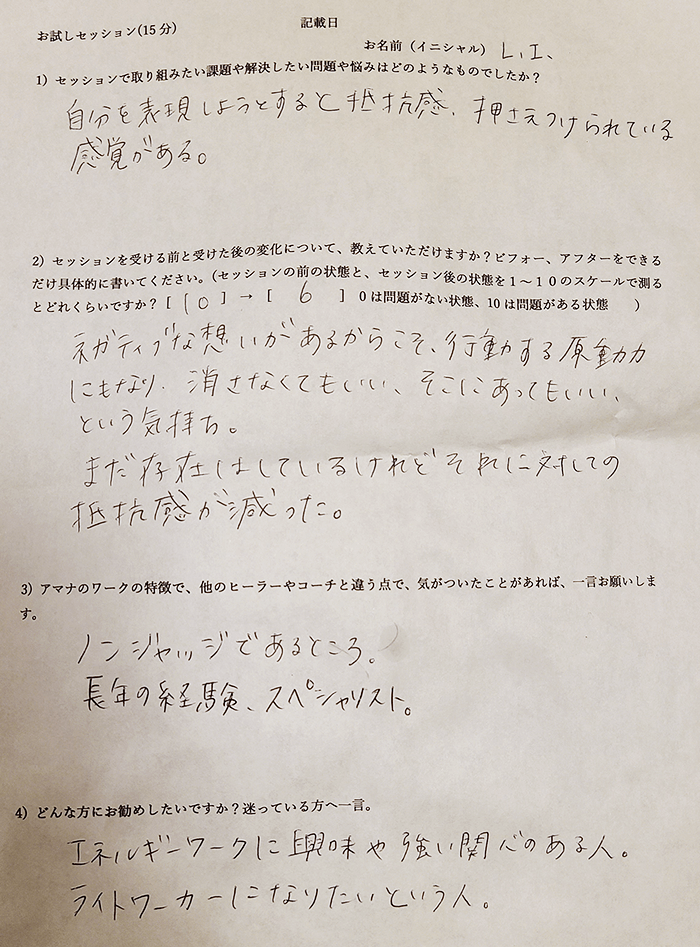 お試しセッション(15分)
記載日
お名前（イニシャル） L.I.
1) セッションで取り組みたい課題や解決したい問題や悩みはどのようなものでしたか？
自分を表現しようとすると抵抗感、押さえつけられている
感覚がある。
2) セッションを受ける前と受けた後の変化について、教えていただけますか？ビフォー、アフターをできる
だけ具体的に書いてください。(セッションの前の状態と、セッション後の状態を1～10のスケールで測る
とどれくらいですか？[ 10 ] → [ 6 ] 0は問題がない状態、10は問題がある状態 )
ネガティブな想いがあるからこそ、行動する原動力
にもなり、消さなくてもいい、そこにあってもいい、
という気持ち。
まだ存在はしているけれどそれに対しての
抵抗感が減った。
3) アマナのワークの特徴で、他のヒーラーやコーチと違う点で、気がついたことがあれば、一言お願いしま
す。
ノンジャッジであるところ。
長年の経験、スペシャリスト。
4) どんな方にお勧めしたいですか？迷っている方へ一言。
エネルギーワークに興味や強い関心のある人。
ライトワーカーになりたいという人。